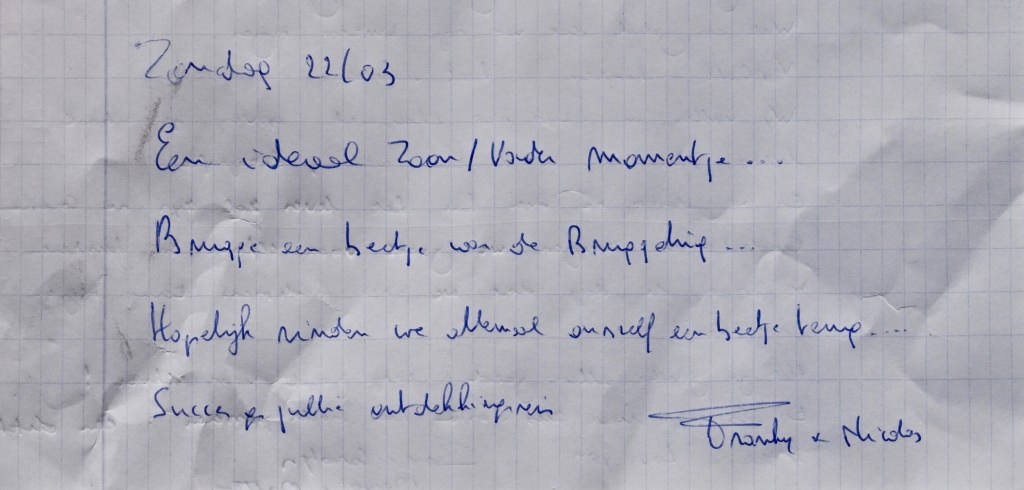 Zondag 22/03
Een ideaal Zoon/Vader momentje...
Brugge een beetje van de Bruggeling...
Hopelijk vinden we allemaal onszelf een beetje terug....
Succes op jullie ontdekkingsreis
Franky & Nicolas